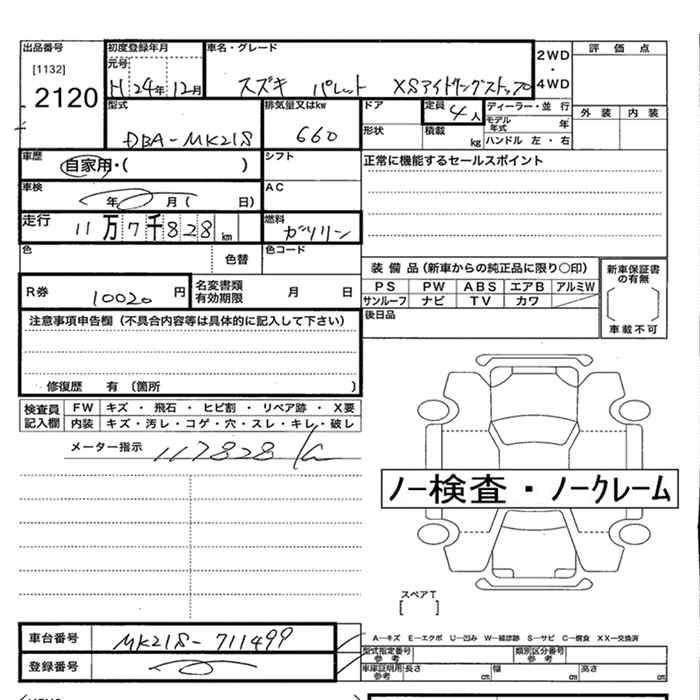 出品番号 初度登録年月 車名・グレード 2WD ・ 4WD 評価点
[1132] 元号
2120 H 24年 12月 スズキ パレット XSアイドリングストップ
型式 排気量又はkw ドア 定員 4人 ディーラー・並行 外装 内装
DBA-MK21S 660 形状 積載 kg モデル年式 年
ハンドル 左・右
車歴 自家用・( ) シフト 正常に機能するセールスポイント
車検 年 月 ( 日) AC
走行 11万7千828km 燃料 ガソリン
色 色替 色コード
装備品(新車からの純正品に限り○印) 新車保証書の有無
R券 10020円 名変書類有効期限 月 日 PS PW ABS エアB アルミW
サンルーフ ナビ TV カワ
車載不可
注意事項申告欄(不具合内容等は具体的に記入して下さい) 後日品
修復歴 有(箇所 )
検査員記入欄 FW キズ・飛石・ヒビ割・リペア跡・X要
内装 キズ・汚レ・コゲ・穴・スレ・キレ・破レ
メーター指示 117828 K
ノー検査・ノークレーム
スペアT
[ ]
車台番号 MK21S-711499 A―キズ E―エクボ U―凹み W―補修跡 S―サビ C―腐食 XX―交換済
登録番号 型式指定番号 参考 類別区分番号 参考
車庫証明用 参考 長さ cm 幅 cm 高さ cm